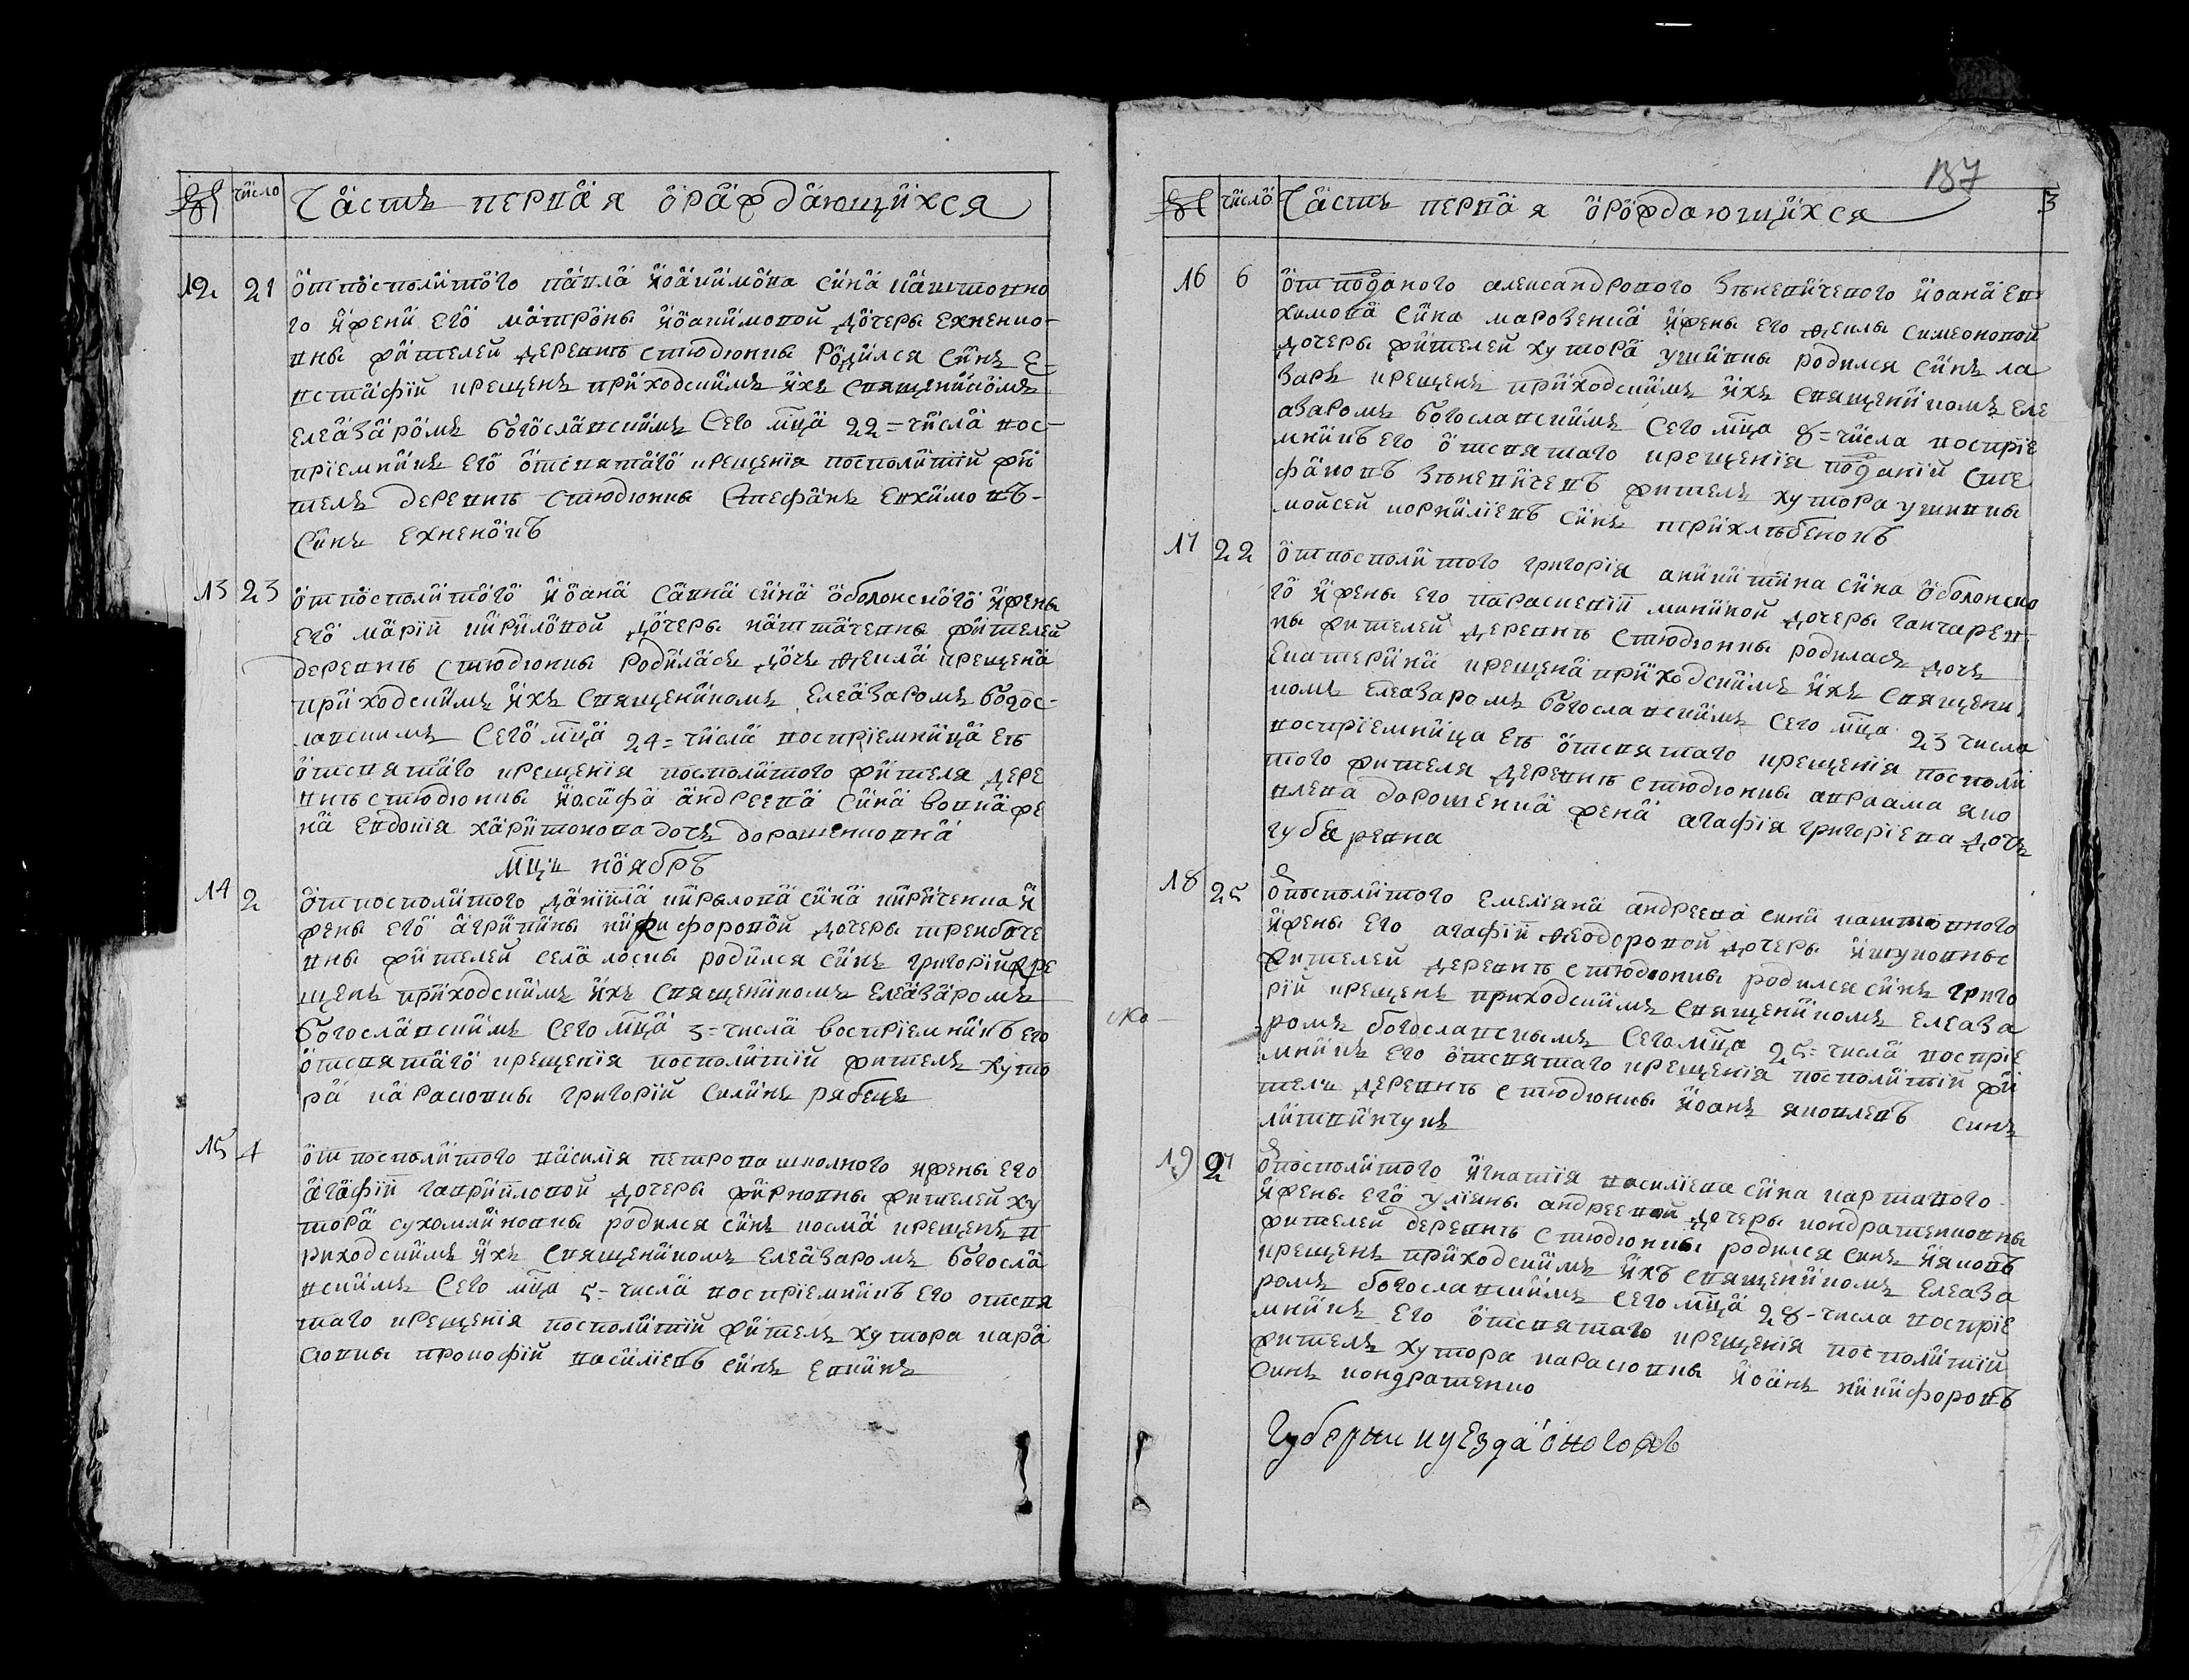 число Часть первая ораждающихся
12 21 от посполитого павла иоакимова сина каплтовно
го ижени его матроны иоакимовой дочеры ехненко-
вны жителей деревнѣ стюдюнкы родился синъ е-
встафий крещенъ приходскимъ ихъ священикомъ
елеазаромъ богославскимъ сего мца 22= числа вос-
приемникъ его отсвятаго крещения посполитий жи
тель деревнѣ стюдюнкы стефанъ евхимовъ-
синъ ехненокъ
13 23 от посполитого иоана савка сина оболонского ижены
его марии кириловой дочеры жителей
деревнѣ стюдюнкы родиласъ дочъ ѳекла крещена
приходскимъ ихъ священикомъ елеазаромъ богос-
лавскимъ сего мца 24= числа восприемница еѣ
отсвятаго крещения посполитого жителя дере
внѣ стюдюнкы иосифа андреева сина вовка же
на евдокия харитонова дочъ дорошенковна
мцъ ноябръ
14 2 от посполитого даниила кирылова сина кириченка и
жены его агрипины никифоровой дочеры трембаче
вны жителей села лоскы родился синъ григорий кре
щенъ приходскимъ ихъ священикомъ елеазаромъ
богославскимъ сего мца 3= числа восприемникъ его
отсвятаго крещения посполитий жителъ хуто
ра карасювкы григорий силинъ рябецъ
15 4 от посполитого василия петрова школного ижены его
агафии гавриловой дочеры жирковны жителей ху
тора сухомлиновкы родился синъ косма крещенъ п
риходскимъ ихъ священикомъ елеазаромъ богосла
вскимъ сего мца 5= числа восприемникъ его отсвя
таго крещения посполитий жителъ хутора кара
сювкы прокофий василиевъ синъ
137
число Часть первая орождающихся 3
16 6 от поданого александрового зѣневичевого иоана ев
химова сина марозенка ижены его ѳеклы симеоновой
дочеры жителей хутора ушивкы родился синъ ла
заръ крещенъ приходскимъ ихъ священикомъ еле
азаромъ богославскимъ сего мца 8= числа восприе
мникъ его отсвятаго крещения поданий сте
фановъ зѣневичевъ жителъ хутора ушивкы
мойсей корнилиевъ синъ прихлѣбенокъ
17 22 от посполитого григория аникитина сина оболонско
го ижены его параскевии микиной дочеры ганчарев-
ны жителей деревнѣ стюдюнкы родиласъ дочъ
екатерина крещена приходскимъ ихъ священи
комъ елеазаромъ богославскимъ сего мца 23 числа
восприемница еѣ отсвятаго крещения посполи
того жителя деревнѣ стюдюнкы авраама яко
влева дорошенка жена агафия григориева дочъ
губаревна
18 25 от посполитого емелияна андреева сина каплтовного
ижены его агафии ѳеодоровой дочеры
жителей деревнѣ стюдюнкы родился синъ григо
рий крещенъ приходскимъ священикомъ елеаза
ромъ богославскымъ сего мца 25= числа восприе
мникъ его отсвятаго крещения посполитий жи
телъ деревнѣ стюдюнкы иоанъ яковлевъ синъ
литвинчукъ
19 27 от посполитого игнатия василиева сина картавого
ижены его улияны андреевой дочеры кондратенковны
жителей деревнѣ стюдюнкы родился синъияковъ
крещенъ приходскимъ ихъ священикомъ елеаза
ромъ богославскимъ сего мца 28- числа восприе
мникъ его отсвятаго крещения посполитий
жителъ хутора карасювкы иоанъ никифоровъ
синъ кондратенко
ско
Губернии иуезда оного жъ